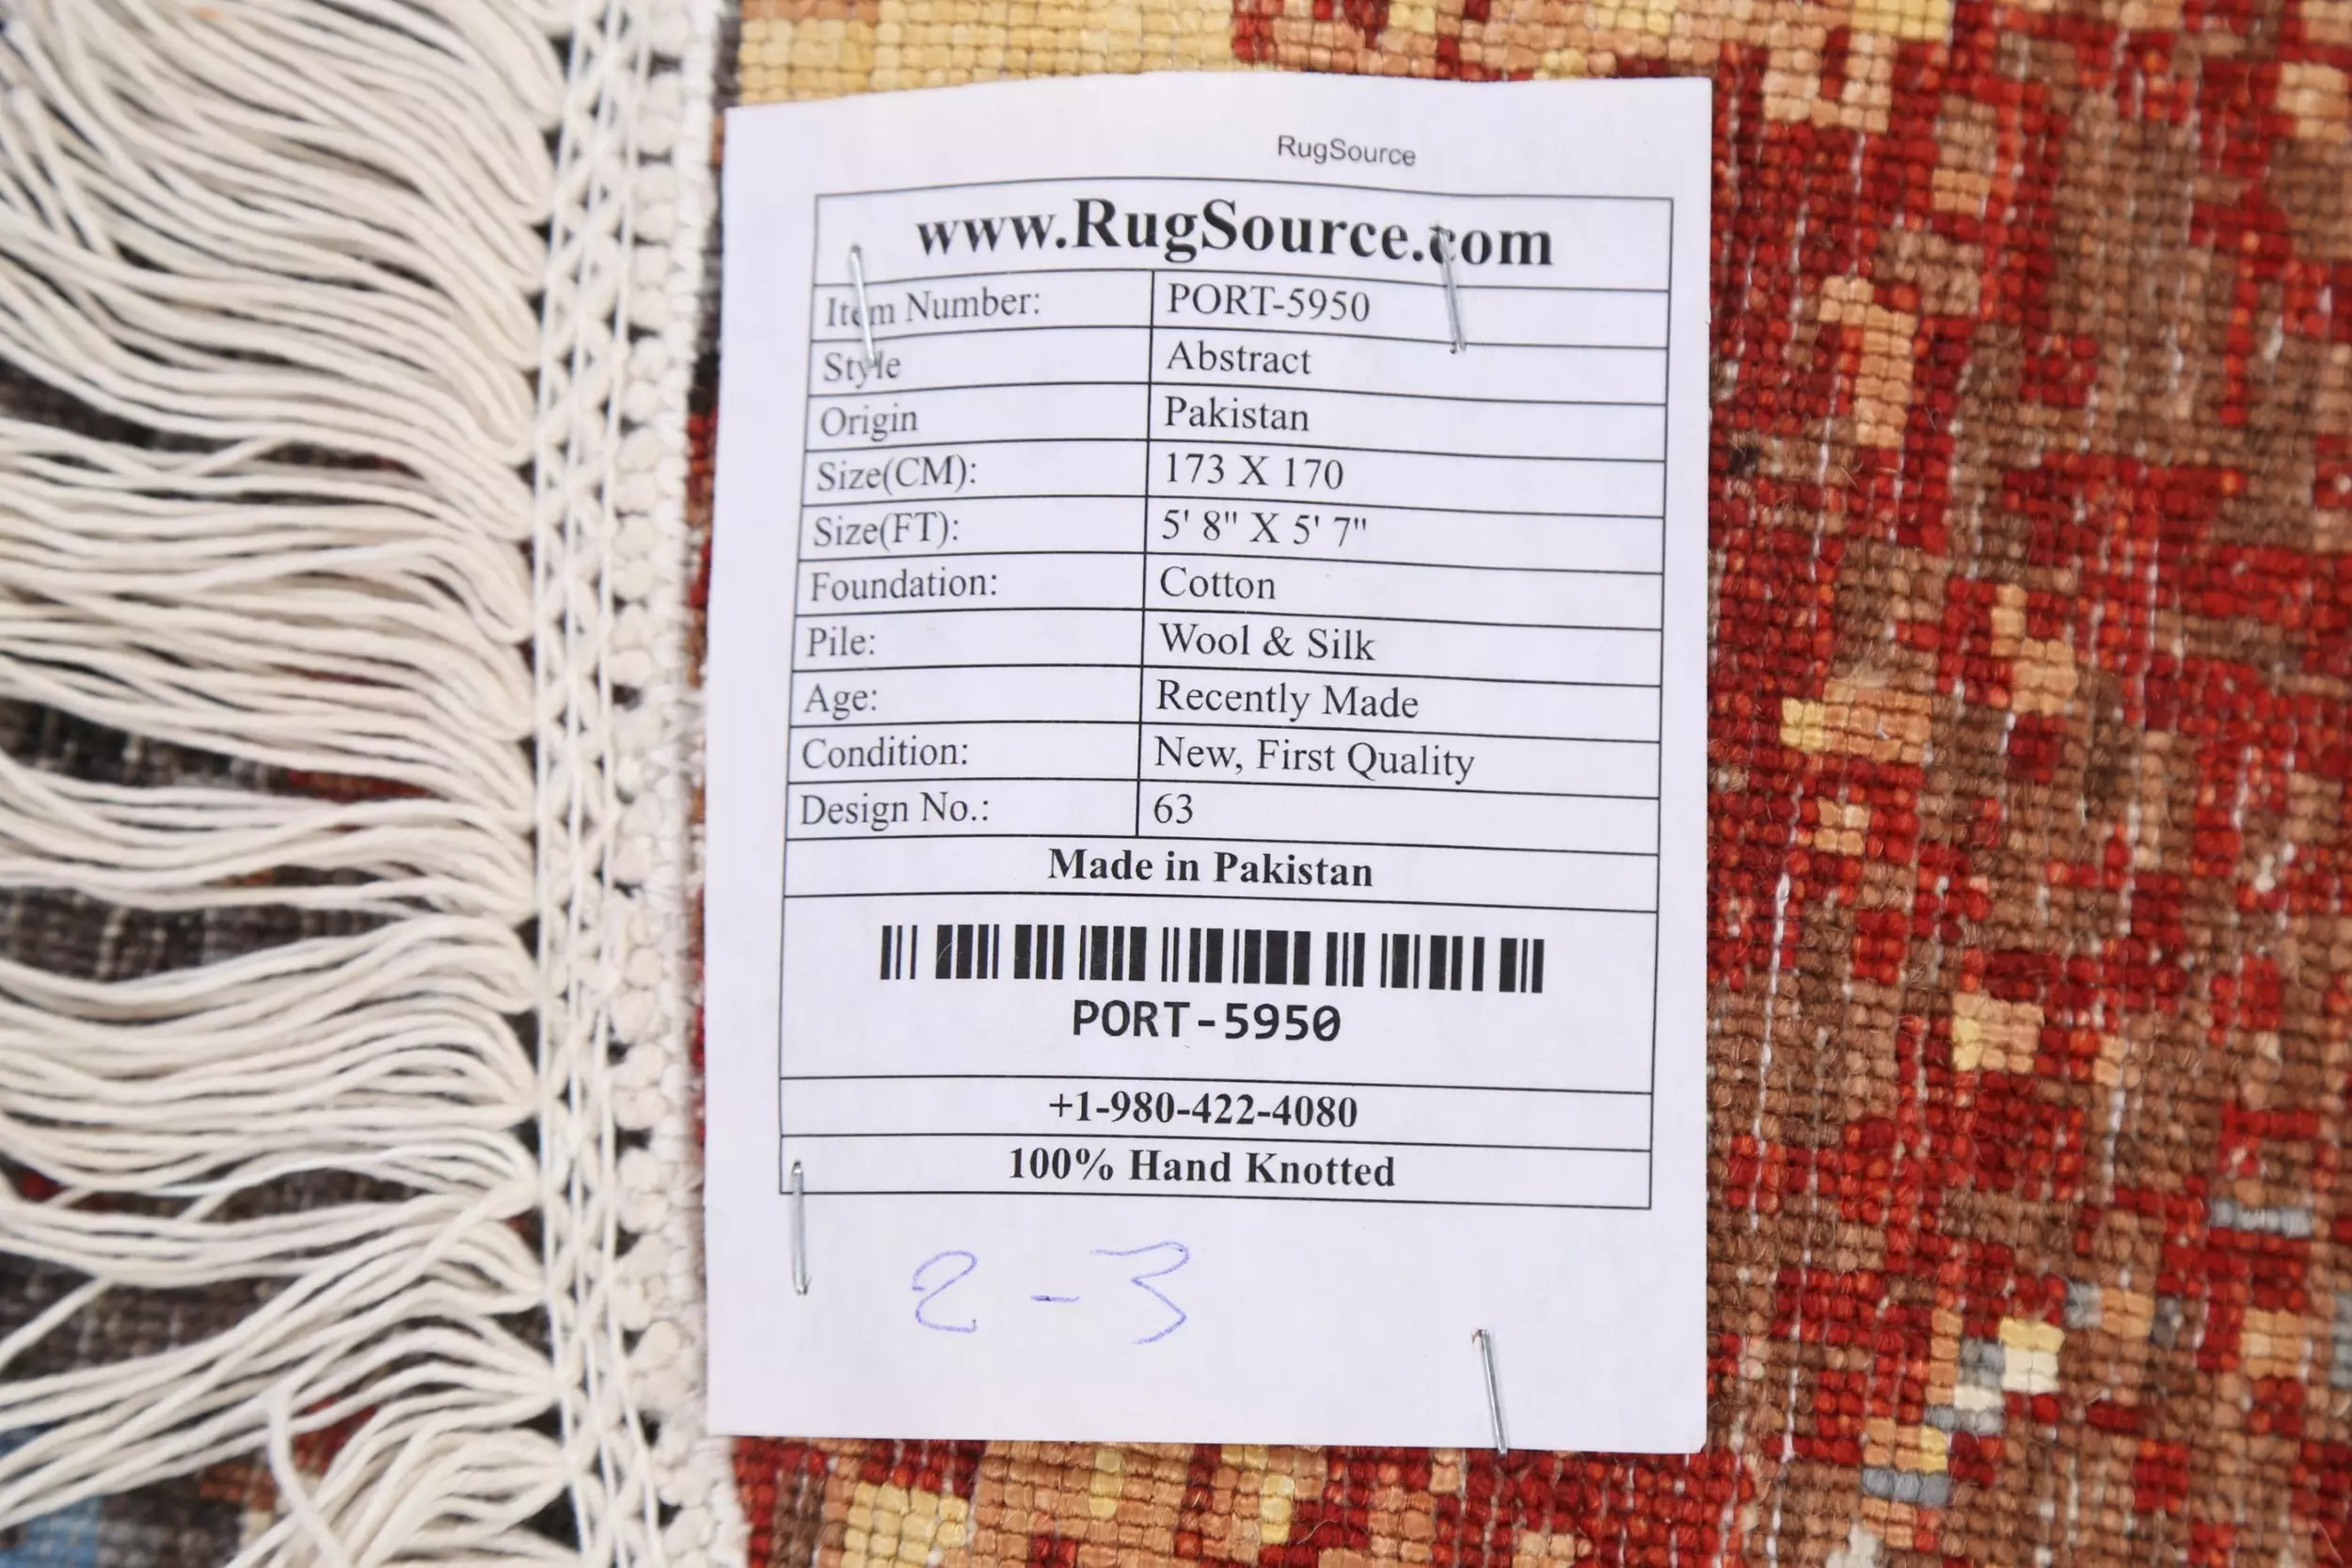 RugSource
www.RugSource.com
Item Number: PORT-5950
Style Abstract
Origin Pakistan
Size(CM): 173 X 170
Size(FT): 5' 8" X 5' 7"
Foundation: Cotton
Pile: Wool & Silk
Age: Recently Made
Condition: New, First Quality
Design No.: 63
Made in Pakistan
PORT-5950
+1-980-422-4080
100% Hand Knotted
2-3